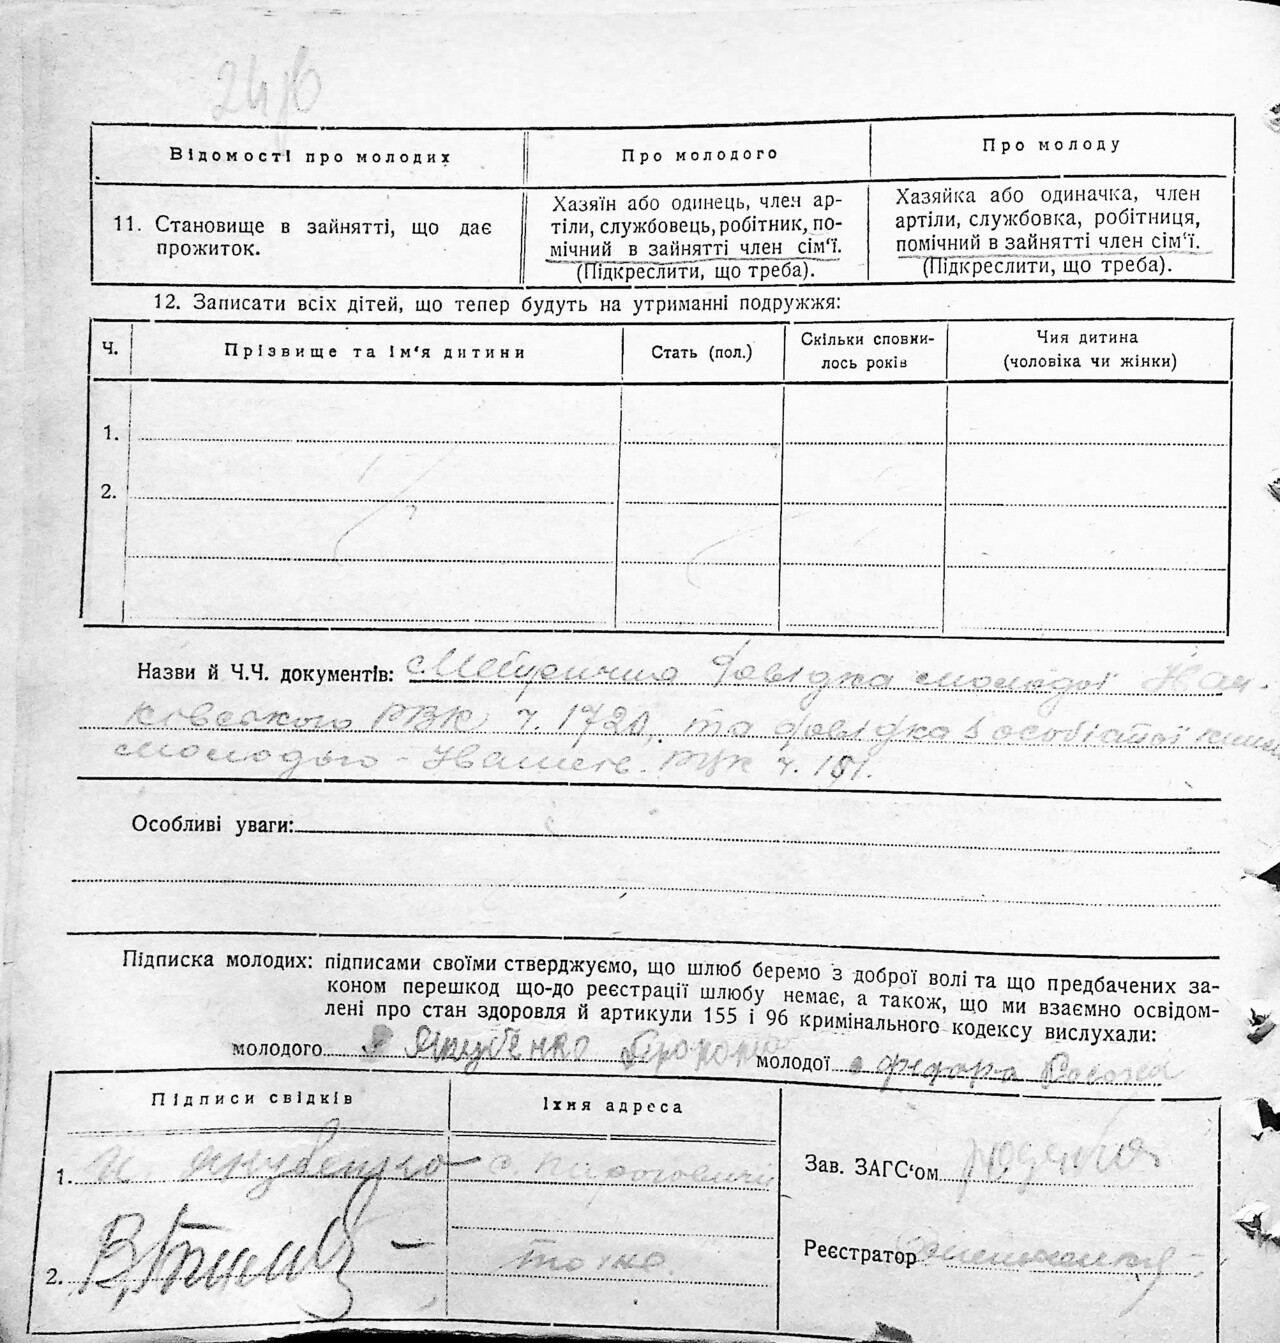 Відомості про молодих
Про молодого
Про молоду
11. Становище в зайнятті, що дає
прожиток.
Хазяїн або одинець, член ар-
тіли, службовець, робітник, по-
мічний в зайнятті член сім‘ї.
(Підкреслити, що треба).
Хазяйка або одиначка, член
артіли, службовка, робітниця,
помічний в зайнятті член сім‘ї.
(Підкреслити, що треба).
12. Записати всіх дітей, що тепер будуть на утриманні подружжя:
Ч.
Прізвище та ім‘я дитини
Стать (пол.)
Скільки сповни-
лось років
Чия дитина
(чоловіка чи жінки)
1.
2.
Назви й Ч.Ч. документів: довідка молодої Іван-
ківського РВК ч. 1720, та довідка
молодого - ч. 151.
Особливі уваги:
Підписка молодих: підписами своїми стверджуємо, що шлюб беремо з доброї волі та що предбачених за-
коном перешкод що-до реєстрації шлюбу немає, а також, що ми взаємно освідом-
лені про стан здоровля й артикули 155 і 96 кримінального кодексу вислухали:
молодого Якубенко молодої
Підписи свідків
Їхня адреса
1. Якубенко
Зав. ЗАГС‘ом
2.
Реєстратор